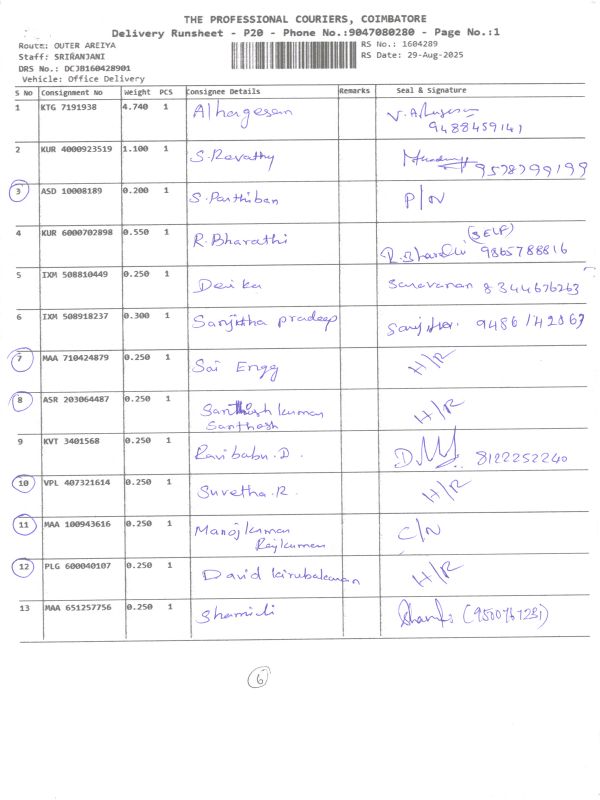 THE PROFESSIONAL COURIERS, COIMBATORE
Delivery Runsheet - P20 - Phone No.:9047080280 - Page No.:1
Route: OUTER AREIYA RS No.: 1604289
Staff: SRIRANJANI RS Date: 29-Aug-2025
DRS No.: DCJB160428901
Vehicle: Office Delivery
S No Consignment No Weight PCS Consignee Details Remarks Seal & Signature
1 KTG 7191938 4.740 1 Alhargesan
9488459141
2 KUR 4000923519 1.100 1 S.Revathy 9578799199
3 ASD 10008189 0.200 1 S.Parthiban P/N
4 KUR 6000702898 0.550 1 R.Bharathi (SELF)
R.Bharathi 9865788816
5 IXM 508810449 0.250 1 Devika Saravanan 8344676263
6 IXM 508918237 0.300 1 Sanjitha pradeep 9486142867
7 MAA 710424879 0.250 1 Sai Engg H/R
8 ASR 203064487 0.250 1 Santhosh kumar H/R
Santhosh
9 KVT 3401568 0.250 1 Ravibabu.D. 8122252240
10 VPL 407321614 0.250 1 Suvetha.R. H/R
11 MAA 100943616 0.250 1 Manojkumar C/N
Rajkumar
12 PLG 600040107 0.250 1 David kirubakaran H/R
13 MAA 651257756 0.250 1 Shamili (9500767281)
6